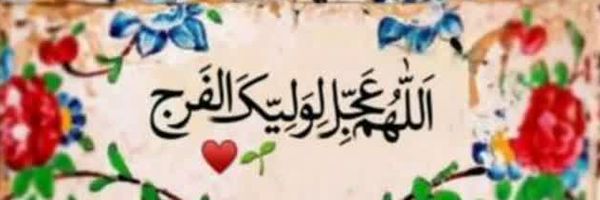 اَللّٰهُمَّ عَجِّلْ لِوَلِیِّکَ الفَرَج
♥️🌱